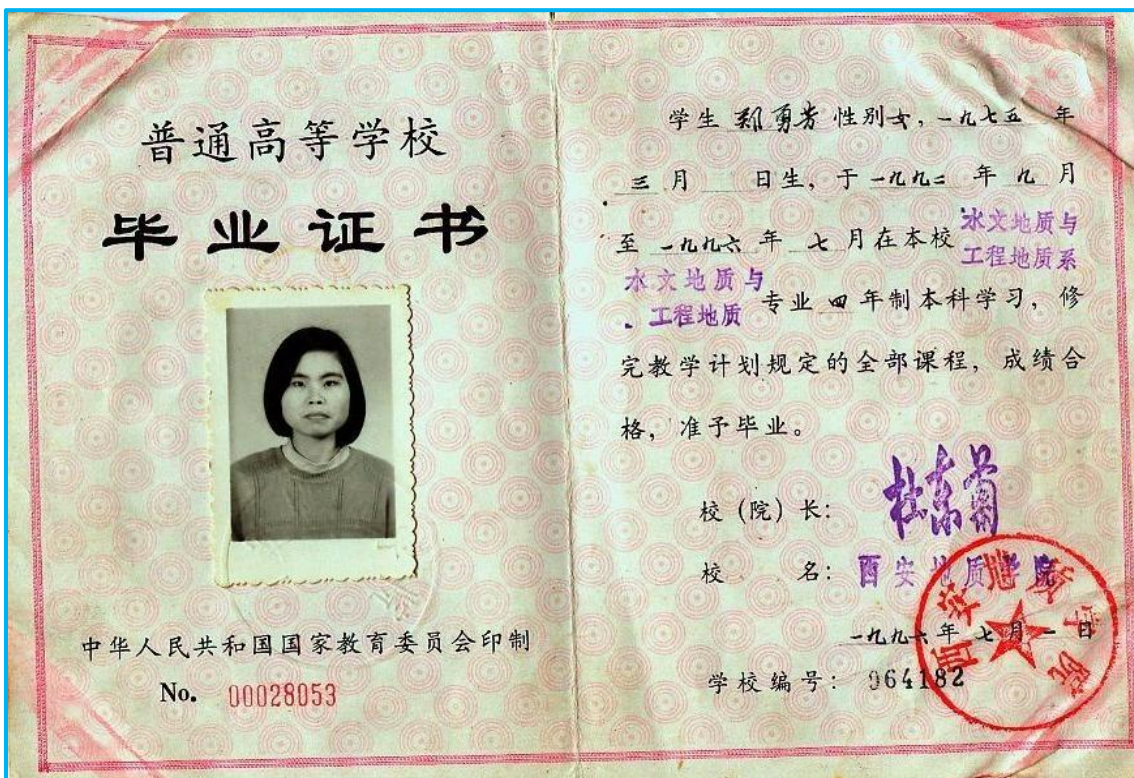 普通高等学校
毕业证书
中华人民共和国国家教育委员会印制
No. 00028053
学生 郑勇芳 性别女，一九七五 年
三 月 日生，于 一九九二 年 九 月
至 一九九六 年 七 月在本校 水文地质与
工程地质系
水文地质与
工程地质 专业 四 年制本科学习，修
完教学计划规定的全部课程，成绩合
格，准予毕业。
校（院）长：
校 名：西安地质学院
一九九六 年 七 月 一 日
学校编号：964182
西安地质学院